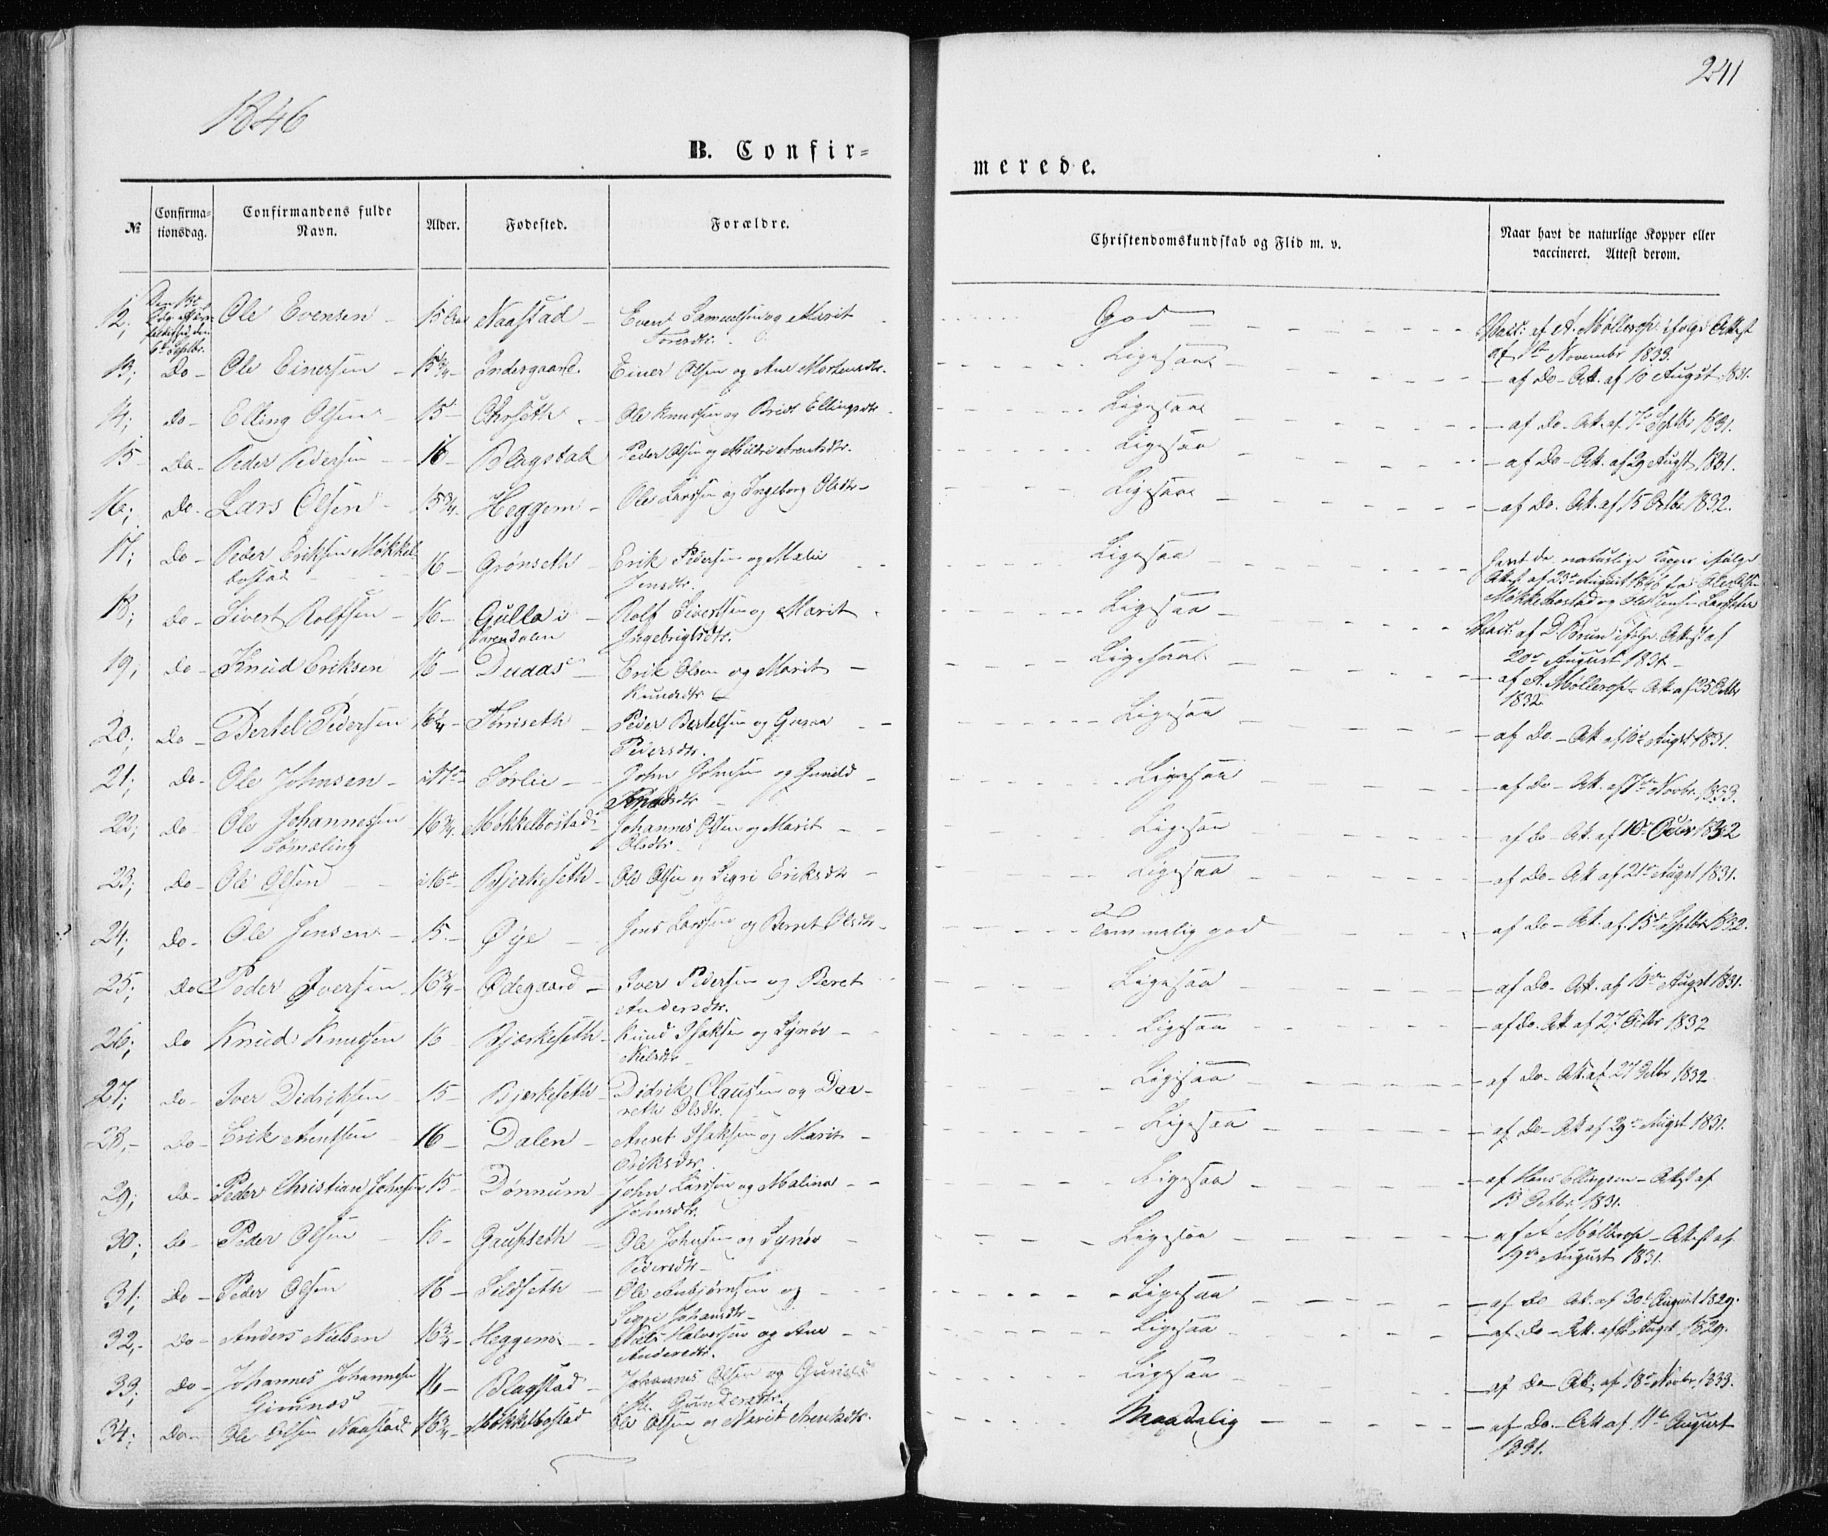 1846
241
B. Confir=
merede.
№
Confirma-
tionsdag.
Confirmandens fulde
Navn.
Alder.
Fødested.
Forældre.
Christendomskundskab og Flid m. v.
Naar havt de naturlige Kopper eller
vaccineret. Attest derom.
12, Ole Evensen - 15 Naastad - Even Samuelsen og Marit God
af 1te November 1833.
13, Do - Ole Einersen - 15 3/4 Indergaard. Einer Olsen og Ane Mortensdtr. Ligesaa - af Do - Att. af 10 August 1831.
14, do - Elling Olsen - 15 - Ole Knudsen og Brit Ellingsdtr. Ligesaa - af Do - Att. af 7de Septbr 1831.
15 - Do - Peder Pedersen - 16 - Blagstad Peder Olsen og Arentsdtr. Ligesaa - af Do - Att. af 29 Augst 1831.
16, do - Lars Olsen - 15 3/4 Heggem - Ole Larssen og Ingeborg Olsdtr - Ligesaa - af Do. Att. af 15 Octbr 1832.
17, Do - Peder Eriksen Møkkel
bostad 16 - Grønseth - Erik Pedersen og
Jensdtr. Ligesaa havt de naturlige Kopper ifølge
Attest af 23de August 1846 fra
Møkkelbostad og Ole Jensen
18, do - Sivert Rolfsen - 16 - Gulla i - Rolf Sivertsen og Marit
Ingebrigtsdtr. Ligesaa af D. Bruun ifølge Attest af
20de August 1831 -
19, do - Knud Eriksen 16 - Erik Olsen og Marit -
Knudsdtr Ligesaa - af A. Møllerop - Att. af 25 Octbr
1832
20, Do - Bertel Pedersen 16 1/4 Peder Bertelsen og
Pedersdtr. Ligesaa - af Do - Att. af Augst 1831.
21, Do - Ole Johnsen - Sørlie - John Johnsen og Gunild - Ligesaa - af Do - Att. af 7de Novbr. 1833.
22, do - Ole Johannessen 16 3/4 Møkkelbostad Johannes Olsen og Marit
Olsdtr. Ligesaa - af do - Att. af 10de 1832
23, do - Ole Olsen - Bjerkeseth - Ole Olsen og Sigri Eriksdtr - Ligesaa - af Do - Att. af 21de Augst 1831.
24, do - Ole Jensen - 15 - Øye - Jens Larssen og Berret Olsdtr - Temmelig god - af Do - Att. af 15de Septbr 1832.
25, do Peder Iversen 16 3/4 Ødegaard - Iver Pedersen og Beret
Andersdtr. Ligesaa - af Do - Att. af Augst 1831.
26, do Knud Knudsen 16 - Bjerkeseth - Knud Isaksen og Synøv
Nilsdtr Ligesaa - af Do. Att. af 27 Octbr 1832
27, do - Iver Didriksen - 15 - Bjerkeseth - Didrik Clausen og Dor-
reth Olsdtr. Ligesaa - af Do - Att. af 27 Octbr 1832
28, - do - Erik Arentsen - 16 - Dalen - Arent Isaksen og Marit
Eriksdtr. Ligesaa - af Do - Att. af 29de Augst 1831.
29, do - Peder Christian Johnsen 15 - Dønnum - John Larssen og Malina
Johnsdtr. Ligesaa - af Hans Ellingsen - Attest af
13 Octbr 1831.
30, Do - Peder Olsen - 16 - Gaupseth - Ole Johnsen og Synøv -
Pedersdtr - Ligesaa - af A Møllerop - Attest af
19de August 1831.
31, Do - Peder Olsen 16 - Sildseth - Ole Asbjørnsen og
Johansdtr - Ligesaa - af do - Att. af 30te August 1829.
32, Do - Anders Nielsen 16 3/4 Heggem - Niels Halvorsen og Ane
Andersdtr. Ligesaa - af Do - Att. af Augst 1829.
33, Do - Johannes Johannesen
Gimnæs 16 - Blagstad - Johannes Olsen og Gunild
Gundersdtr. Ligesaa - af Do - Att. af 18de Novbr. 1833.
34, Do - Ole Olsen Naastad 16 3/4 Møkkelbostad Ole Olsen og Marit Arentsdtr. Maadelig - af Do - Att. af 11te August
1831.